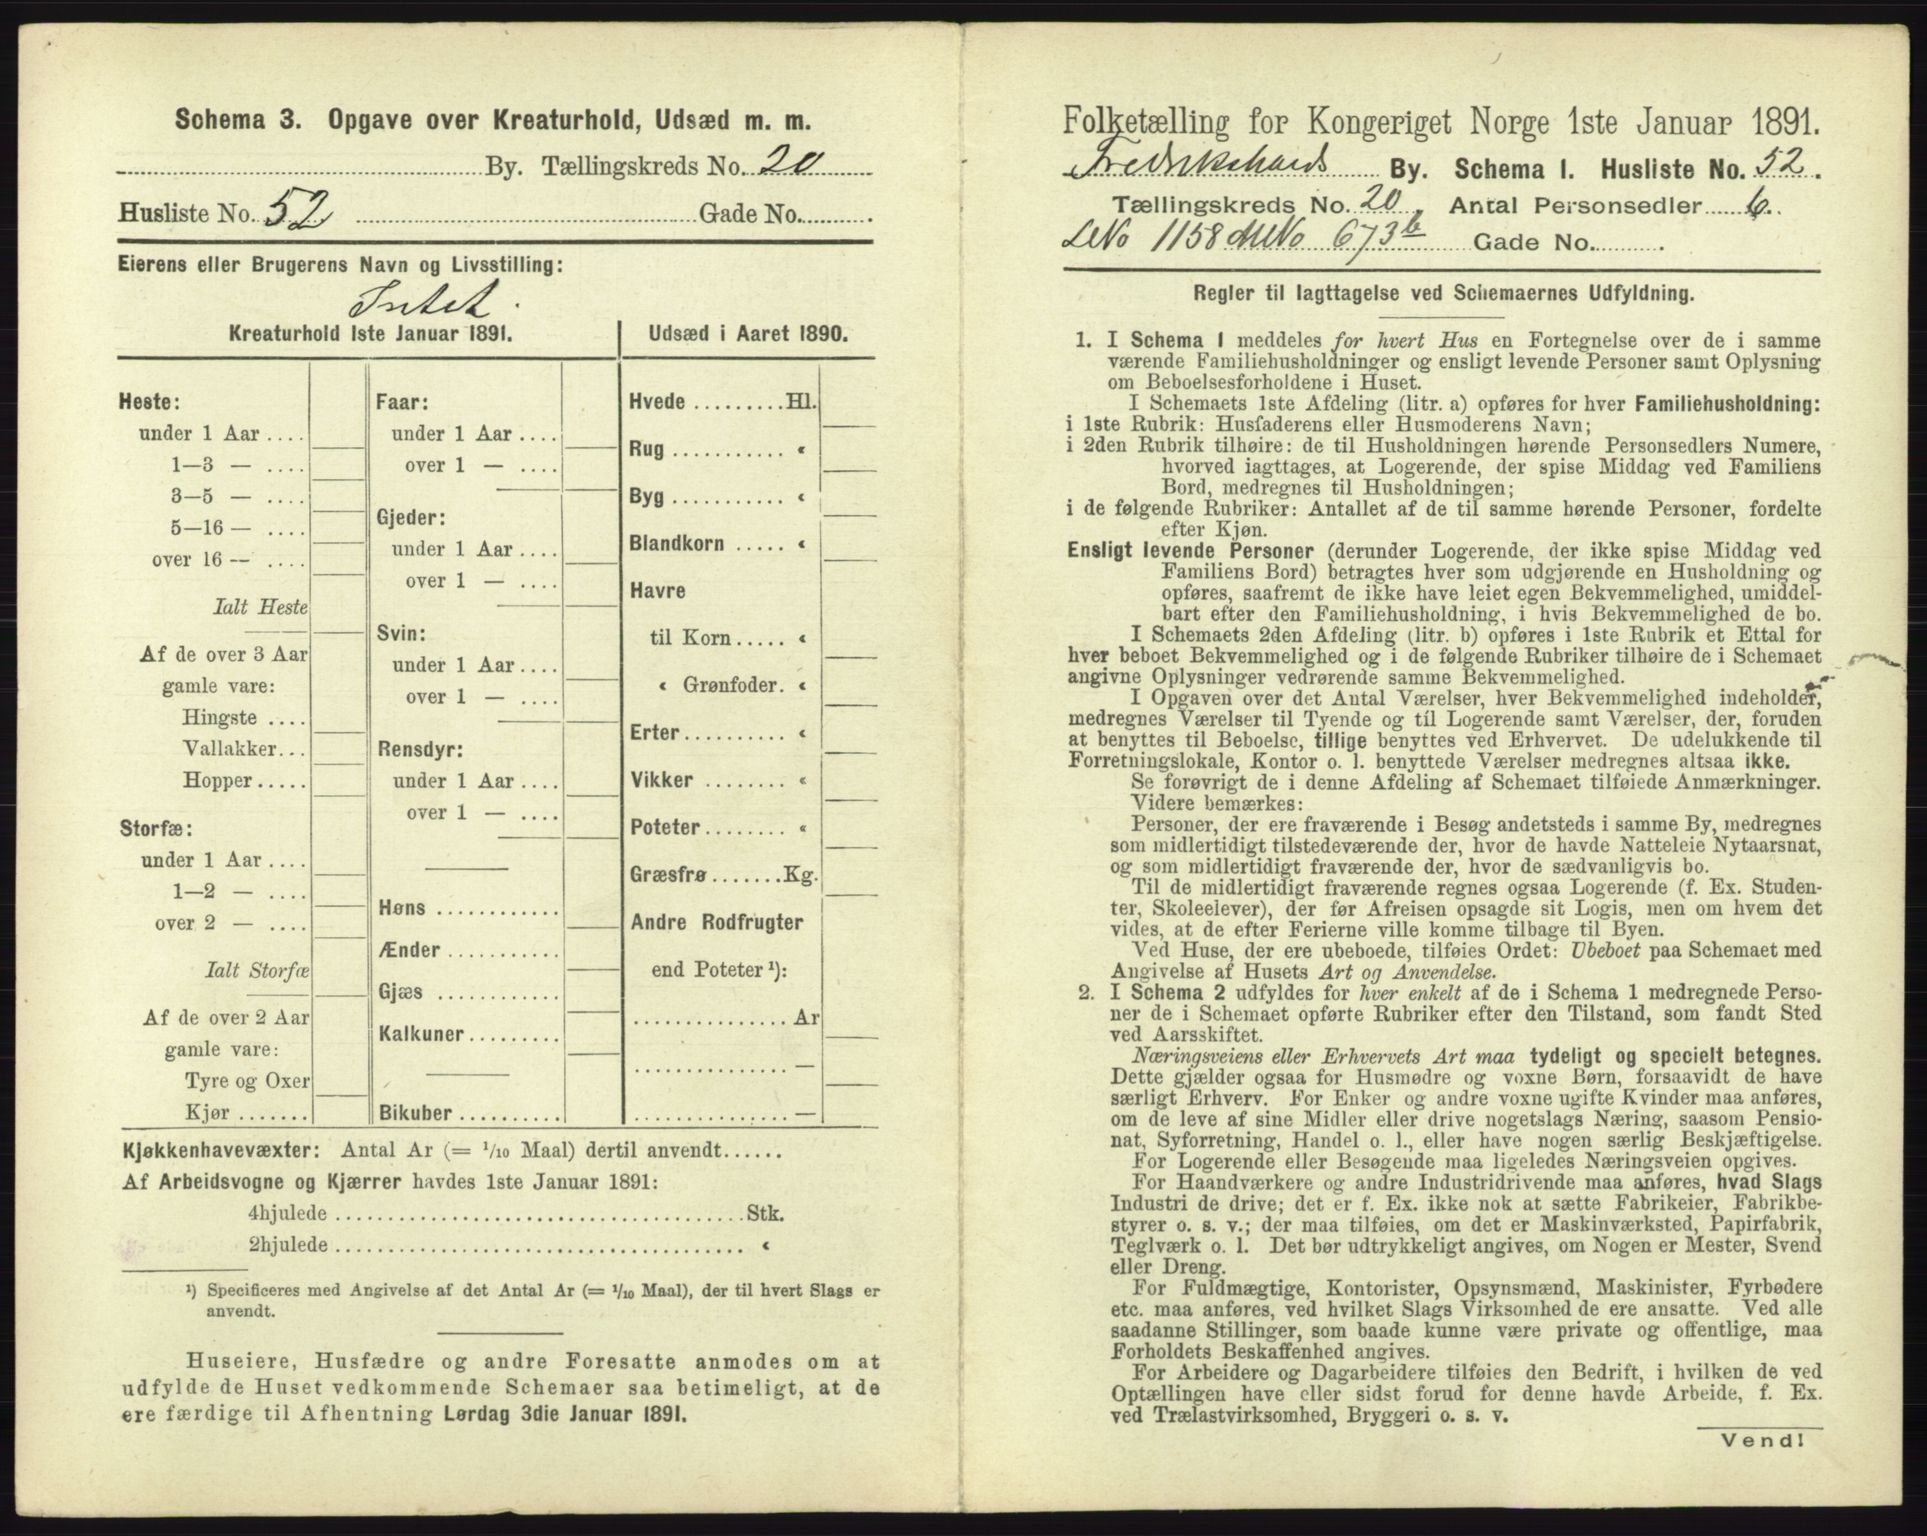 Schema 3. Opgave over Kreaturhold, Udsæd m. m.
By. Tællingskreds No. 20
Husliste No. 52 Gade No.
Eierens eller Brugerens Navn og Livsstilling:
Intet.
Kreaturhold 1ste Januar 1891.
Heste:
under 1 Aar ....
1—3 — ....
3—5 — ....
5—16 — ....
over 16 — ....
Ialt Heste
Af de over 3 Aar
gamle vare:
Hingste ....
Vallakker...
Hopper.....
Storfæ:
under 1 Aar ....
1—2 — ....
over 2 — ....
Ialt Storfæ
Af de over 2 Aar
gamle vare:
Tyre og Oxer
Kjør .......
Faar:
under 1 Aar ....
over 1 — ....
Gjeder:
under 1 Aar ....
over 1 — ....
Svin:
under 1 Aar ....
over 1 — ....
Rensdyr:
under 1 Aar ....
over 1 — ....
Høns ............
Ænder ...........
Gjæs ............
Kalkuner.........
Bikuber ..........
Udsæd i Aaret 1890.
Hvede .........Hl.
Rug ........... «
Byg ........... «
Blandkorn ..... «
Havre
til Korn..... «
« Grønfoder. «
Erter.......... «
Vikker ........ «
Poteter........ «
Græsfrø .......Kg.
Andre Rodfrugter
end Poteter ¹):
............... Ar
............... —
............... —
Kjøkkenhavevæxter: Antal Ar (= 1/10 Maal) dertil anvendt......
Af Arbeidsvogne og Kjærrer havdes 1ste Januar 1891:
4hjulede ........................................ Stk.
2hjulede ........................................ «
¹) Specificeres med Angivelse af det Antal Ar (= 1/10 Maal), der til hvert Slags er
anvendt.
Huseiere, Husfædre og andre Foresatte anmodes om at
udfylde de Huset vedkommende Schemaer saa betimeligt, at de
ere færdige til Afhentning Lørdag 3die Januar 1891.
Folketælling for Kongeriget Norge 1ste Januar 1891.
Fredrikshalds By. Schema 1. Husliste No. 52.
Tællingskreds No. 20. Antal Personsedler 6.
LNo 1158 MNo 673b Gade No.
Regler til Iagttagelse ved Schemaernes Udfyldning.
1. I Schema 1 meddeles for hvert Hus en Fortegnelse over de i samme
værende Familiehusholdninger og ensligt levende Personer samt Oplysning
om Beboelsesforholdene i Huset.
I Schemaets 1ste Afdeling (litr. a) opføres for hver Familiehusholdning:
i 1ste Rubrik: Husfaderens eller Husmoderens Navn;
i 2den Rubrik tilhøire: de til Husholdningen hørende Personsedlers Numere,
hvorved iagttages, at Logerende, der spise Middag ved Familiens
Bord, medregnes til Husholdningen;
i de følgende Rubriker: Antallet af de til samme hørende Personer, fordelte
efter Kjøn.
Ensligt levende Personer (derunder Logerende, der ikke spise Middag ved
Familiens Bord) betragtes hver som udgjørende en Husholdning og
opføres, saafremt de ikke have leiet egen Bekvemmelighed, umiddel-
bart efter den Familiehusholdning, i hvis Bekvemmelighed de bo.
I Schemaets 2den Afdeling (litr. b) opføres i 1ste Rubrik et Ettal for
hver beboet Bekvemmelighed og i de følgende Rubriker tilhøire de i Schemaet
angivne Oplysninger vedrørende samme Bekvemmelighed.
I Opgaven over det Antal Værelser, hver Bekvemmelighed indeholder,
medregnes Værelser til Tyende og til Logerende samt Værelser, der, foruden
at benyttes til Beboelse, tillige benyttes ved Erhvervet. De udelukkende til
Forretningslokale, Kontor o. l. benyttede Værelser medregnes altsaa ikke.
Se forøvrigt de i denne Afdeling af Schemaet tilføiede Anmærkninger.
Videre bemærkes:
Personer, der ere fraværende i Besøg andetsteds i samme By, medregnes
som midlertidigt tilstedeværende der, hvor de havde Natteleie Nytaarsnat,
og som midlertidigt fraværende der, hvor de sædvanligvis bo.
Til de midlertidigt fraværende regnes ogsaa Logerende (f. Ex. Studen-
ter, Skoleelever), der før Afreisen opsagde sit Logis, men om hvem det
vides, at de efter Ferierne ville komme tilbage til Byen.
Ved Huse, der ere ubeboede, tilføies Ordet: Ubeboet paa Schemaet med
Angivelse af Husets Art og Anvendelse.
2. I Schema 2 udfyldes for hver enkelt af de i Schema 1 medregnede Perso-
ner de i Schemaet opførte Rubriker efter den Tilstand, som fandt Sted
ved Aarsskiftet.
Næringsveiens eller Erhvervets Art maa tydeligt og specielt betegnes.
Dette gjælder ogsaa for Husmødre og voxne Børn, forsaavidt de have
særligt Erhverv. For Enker og andre voxne ugifte Kvinder maa anføres,
om de leve af sine Midler eller drive nogetslags Næring, saasom Pensio-
nat, Syforretning, Handel o. l., eller have nogen særlig Beskjæftigelse.
For Logerende eller Besøgende maa ligeledes Næringsveien opgives.
For Haandværkere og andre Industridrivende maa anføres, hvad Slags
Industri de drive; det er f. Ex. ikke nok at sætte Fabrikeier, Fabrikbe-
styrer o. s. v.; der maa tilføies, om det er Maskinværksted, Papirfabrik,
Teglværk o. l. Det bør udtrykkeligt angives, om Nogen er Mester, Svend
eller Dreng.
For Fuldmægtige, Kontorister, Opsynsmænd, Maskinister, Fyrbødere
etc. maa anføres, ved hvilket Slags Virksomhed de ere ansatte. Ved alle
saadanne Stillinger, som baade kunne være private og offentlige, maa
Forholdets Beskaffenhed angives.
For Arbeidere og Dagarbeidere tilføies den Bedrift, i hvilken de ved
Optællingen have eller sidst forud for denne havde Arbeide, f. Ex.
ved Trælastvirksomhed, Bryggeri o. s. v.
Vend!